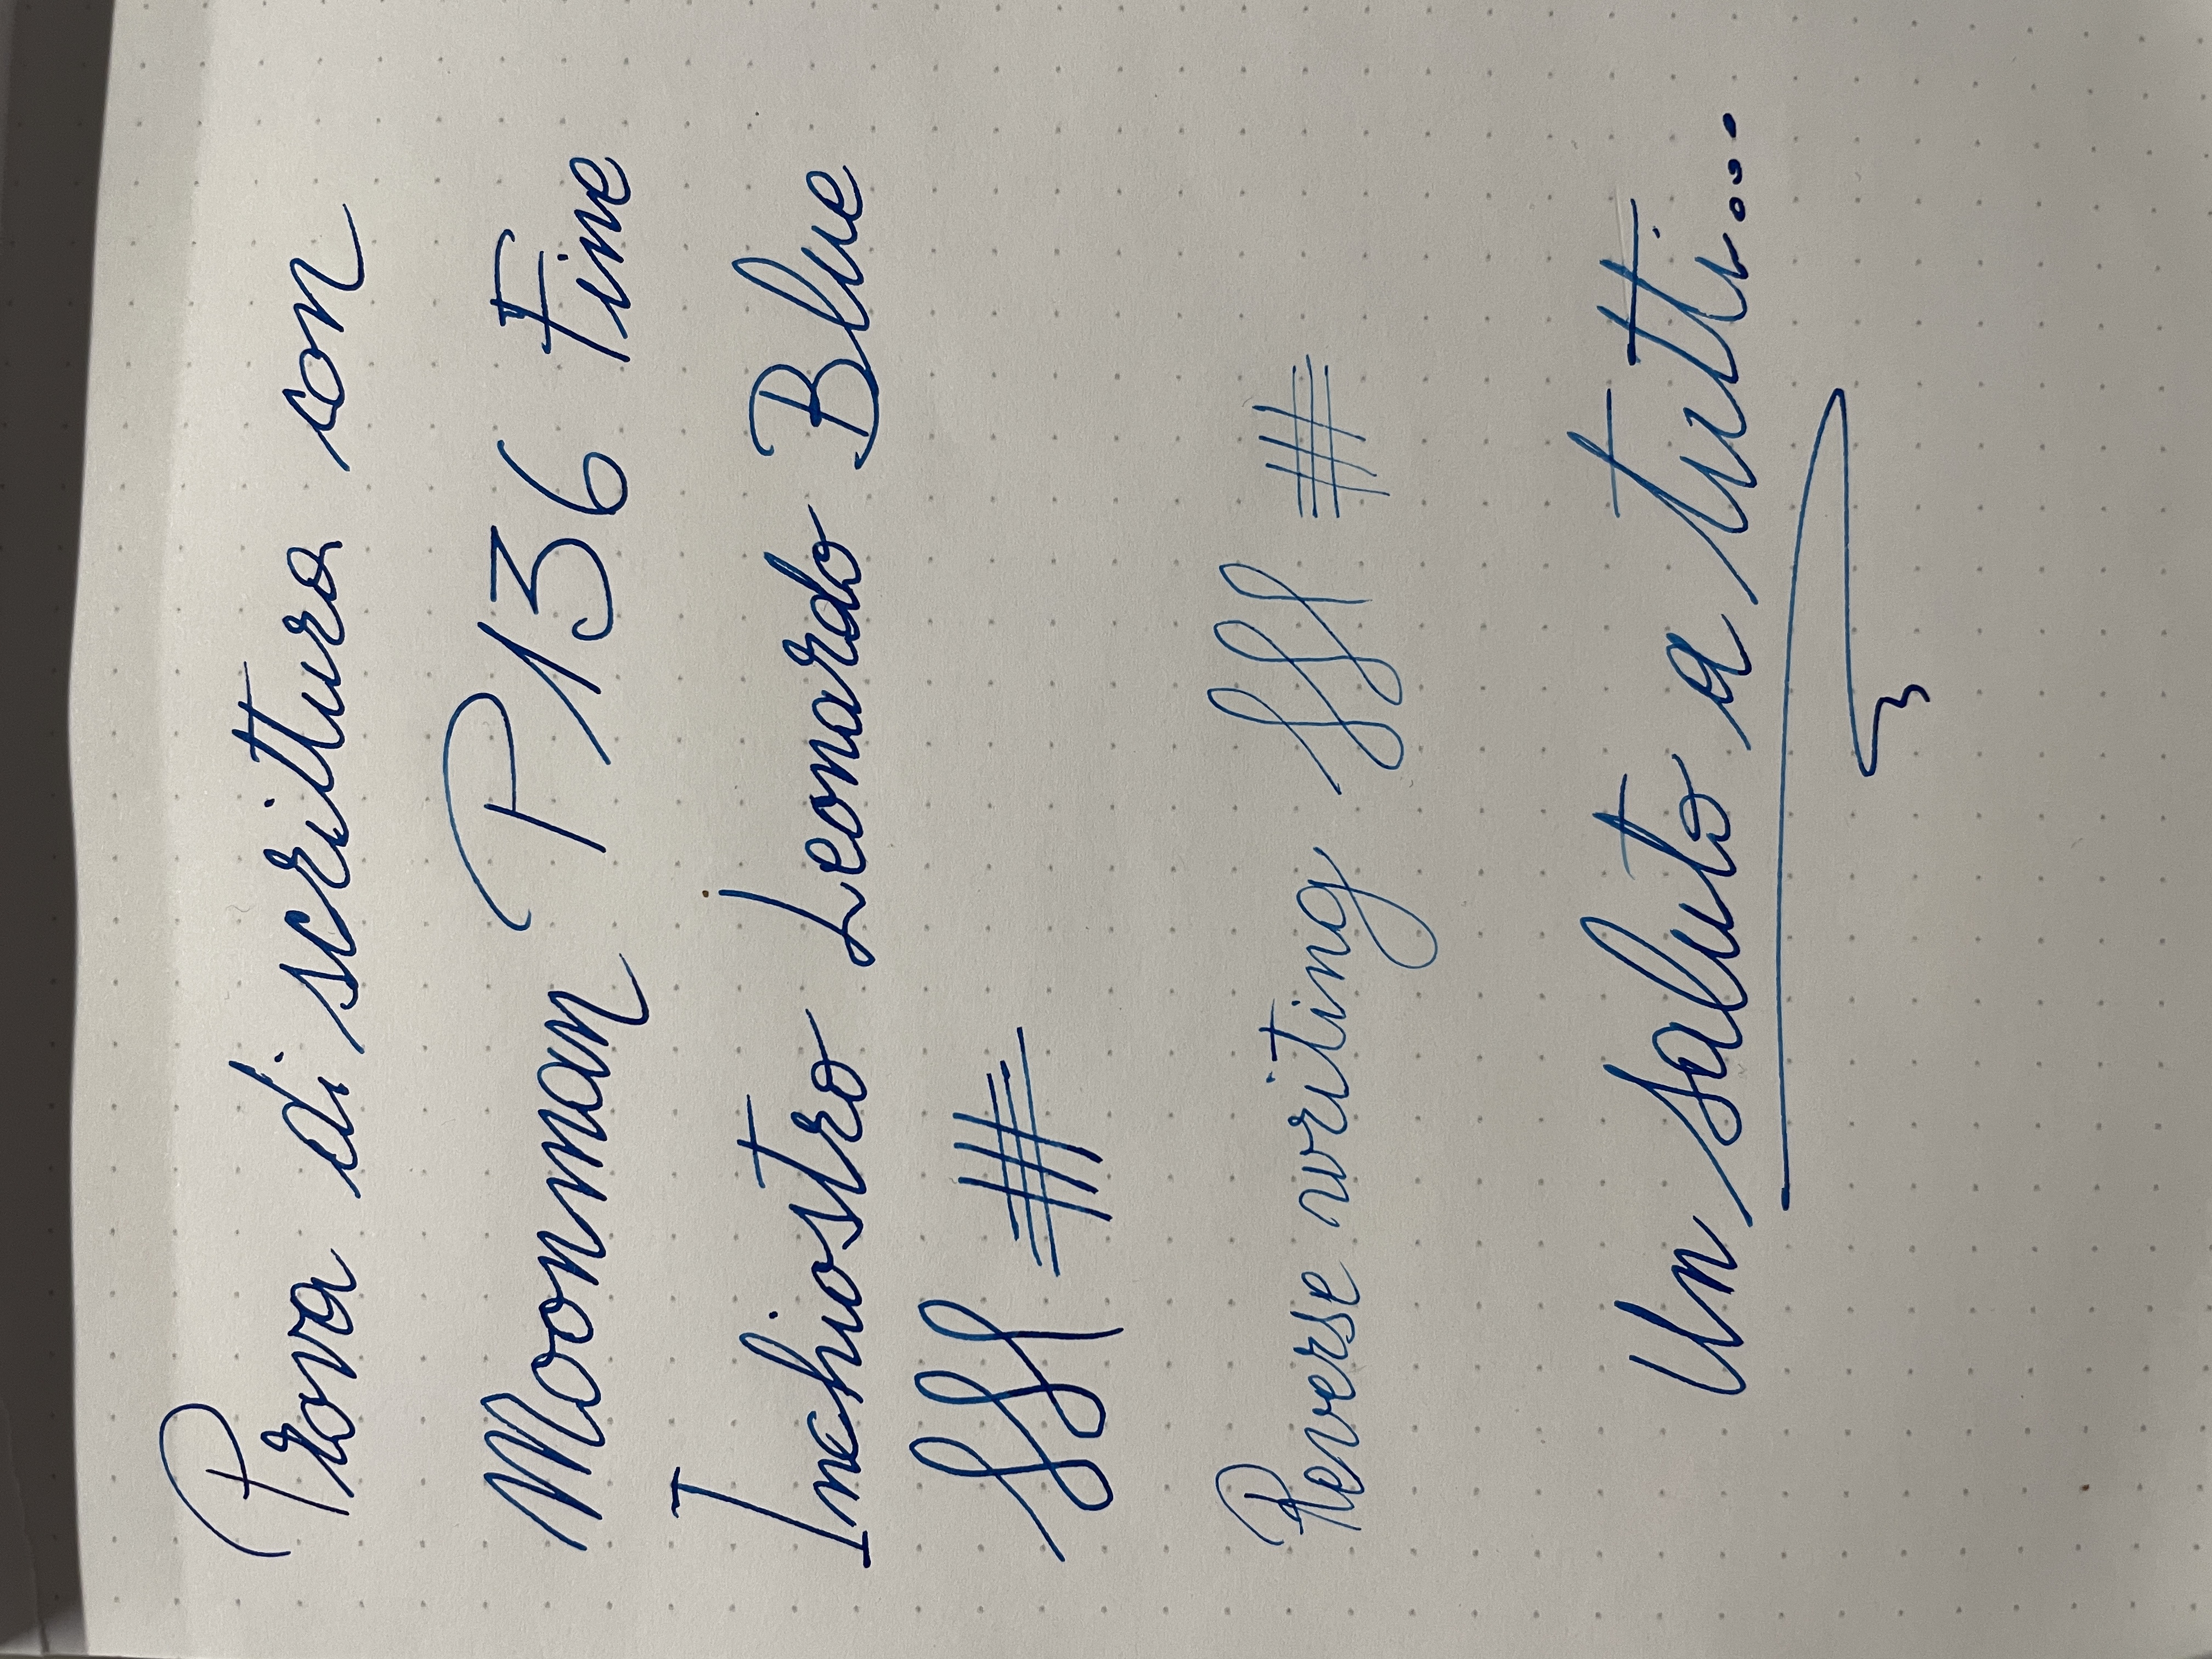 Prova di scrittura con
Moonman P136 Fine
Inchiostro Leonardo Blue
fff #
Reverse writing fff #
Un saluto a tutti...